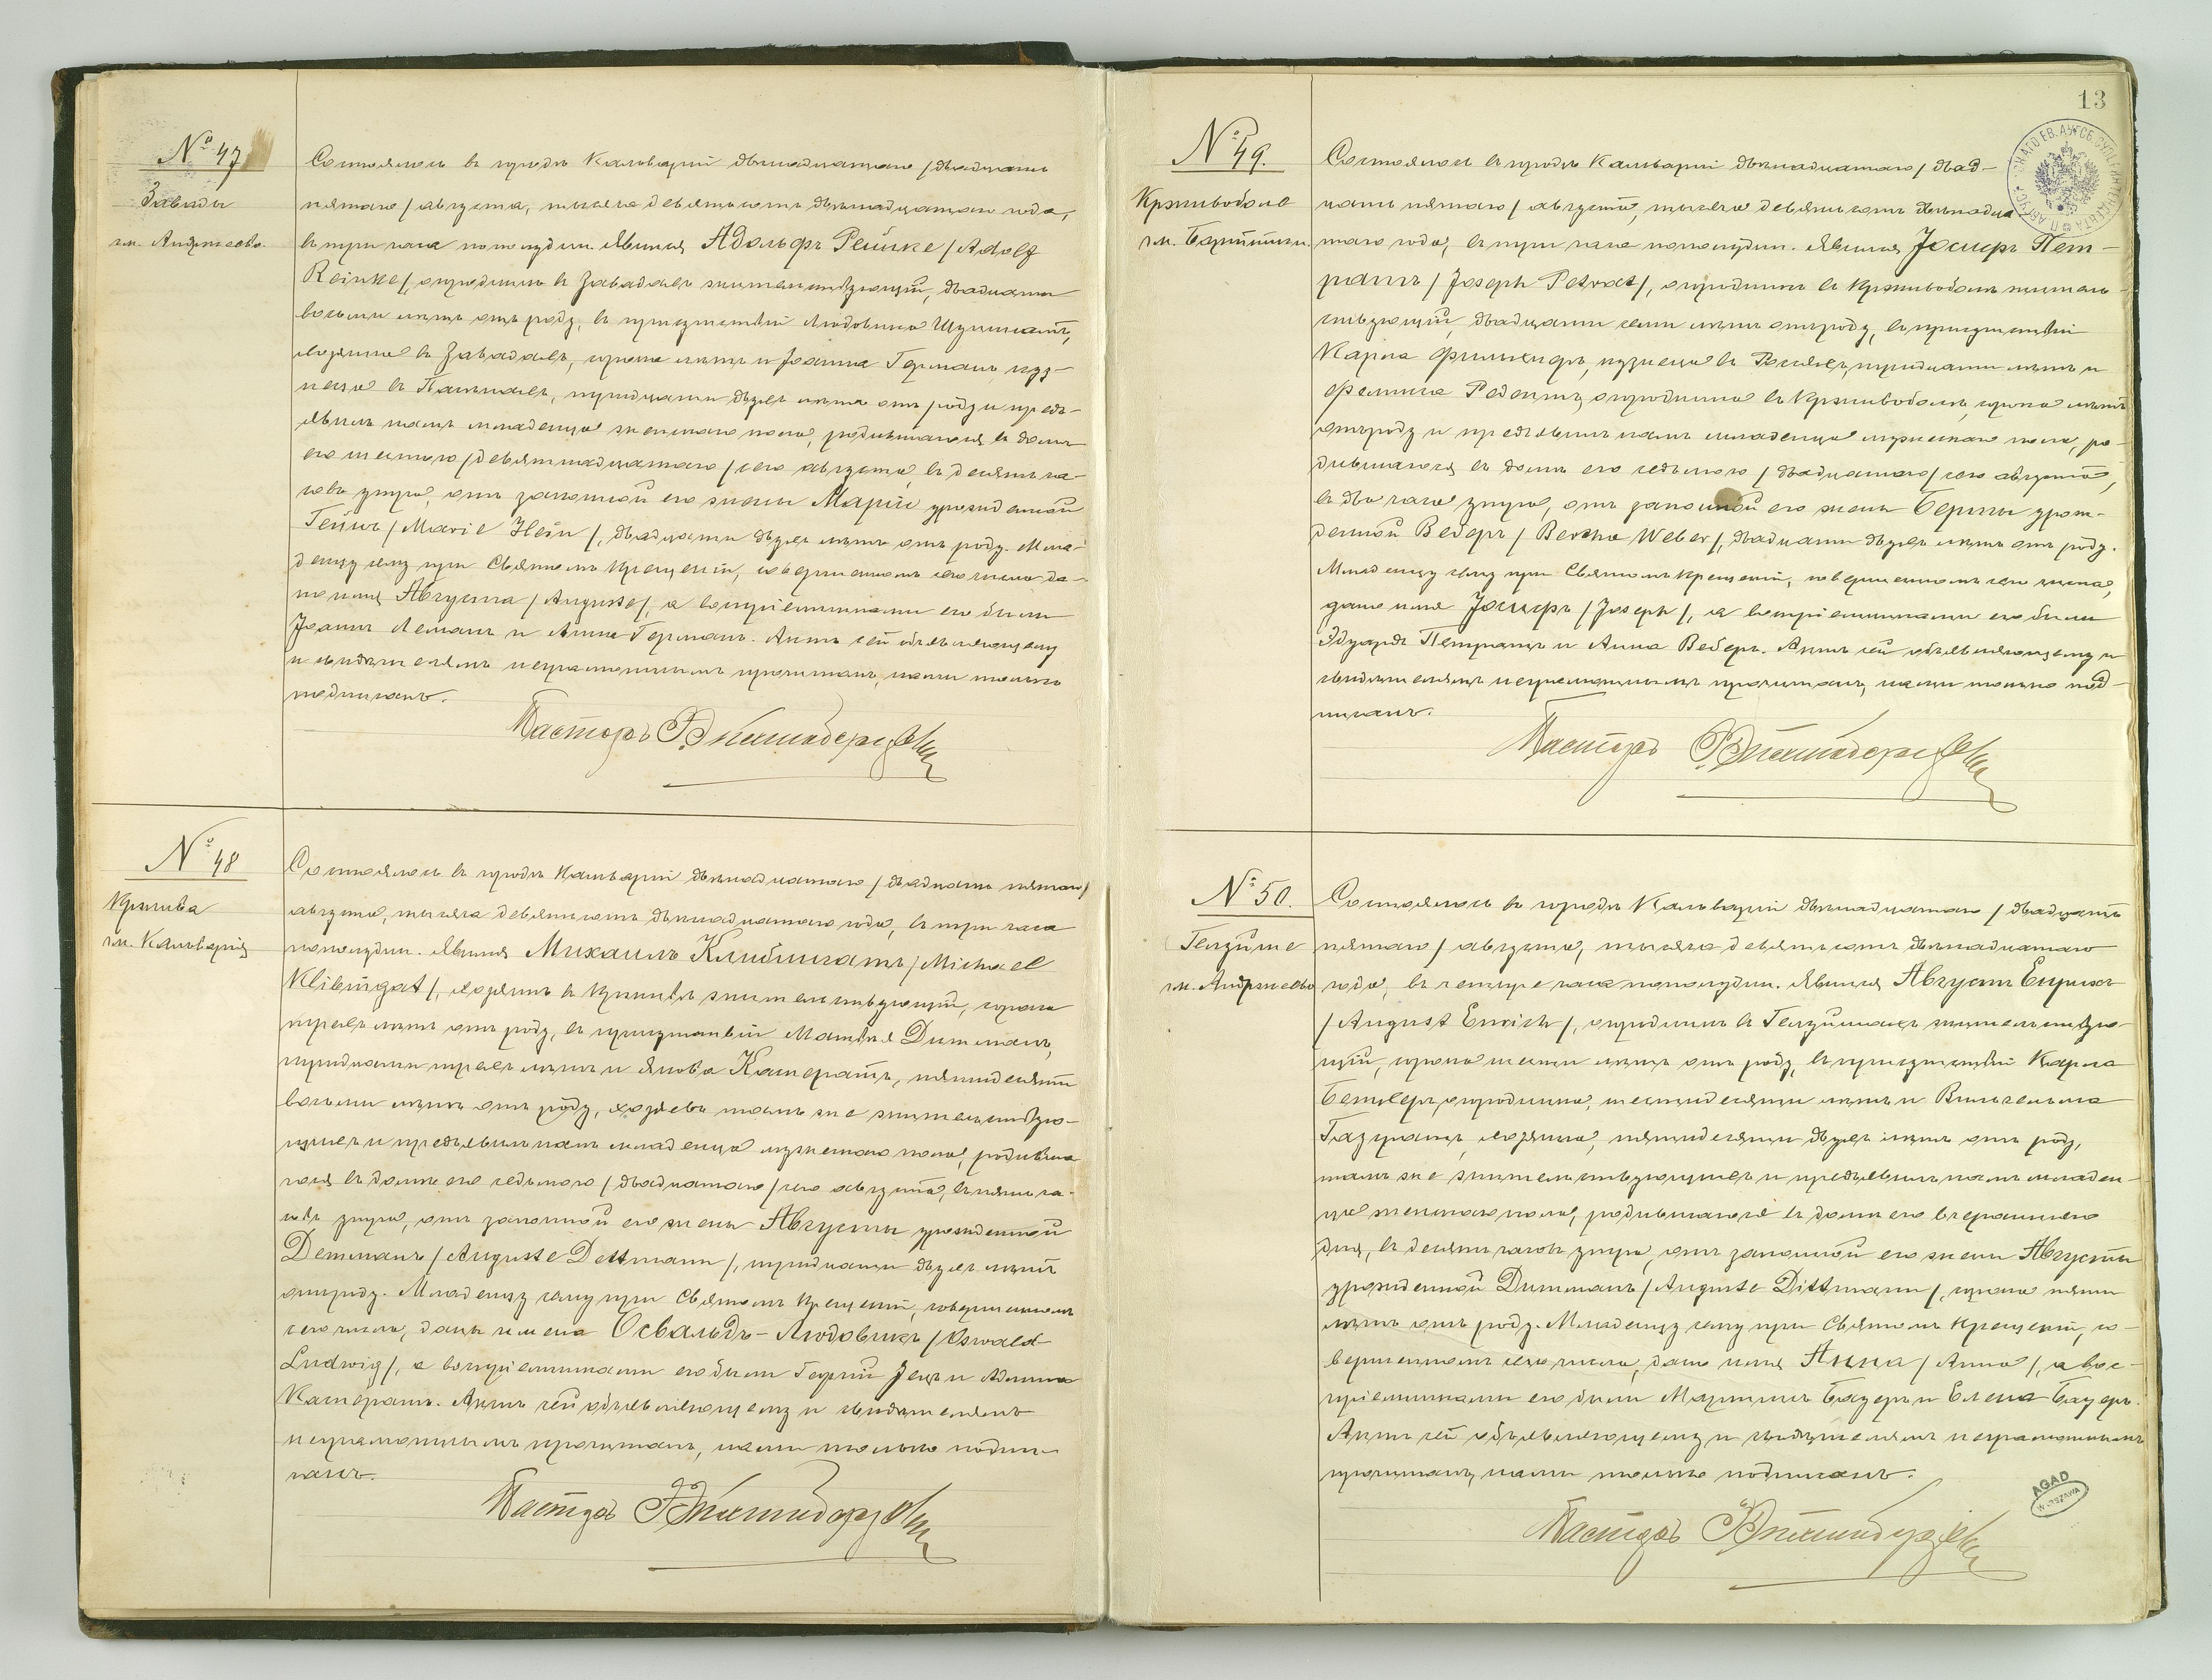 № 47
Завады
гм. Андржеево.
Состоялось въ городѣ Кальваріи двѣнадцатаго /двадцать
пятаго/ августа, тысяча девятьсотъ двѣнадцатаго года,
въ три часа пополудни. Явился Адольфъ Рейнке /Adolf
Reinke/, огродникъ въ Завадахъ жительствующій, двадцати
восьми лѣтъ отъ роду, въ присутствіи Людовика
хозяина въ Завадахъ, сорока лѣтъ и Іоанна Германъ, куз-
неца въ тридцати двухъ лѣтъ отъ роду и предъ-
явилъ намъ младенца женскаго пола, родившагося въ домѣ
его шестого /девятнадцатаго/ сего августа, въ десять ча-
совъ утра, отъ законной его жены Маріи урожденной
Гейнъ /Marie Hein/, двадцати двухъ лѣтъ отъ роду. Мла-
денцу сему при Святомъ Крещеніи, совершенномъ сего числа да-
но имя Августа /Auguste/, а воспріемниками его были
Іоаннъ Леманъ и Анна Германъ. Актъ сей объявляющему
и свидѣтелямъ неграмотнымъ прочитанъ, нами только
подписанъ.
Пасторъ
№ 48
Кржива
гм. Кальварія
Состоялось въ городѣ Кальваріи двѣнадцатаго /двадцать пятаго/
августа, тысяча девятьсотъ двѣнадцатаго года, въ три часа
пополудни. Явился Михаилъ Клибингатъ /Michael
Klibingat/, хозяинъ въ Крживѣ жительствующій, сорока
трехъ лѣтъ отъ роду, въ присутствіи Матвѣя Дитманъ,
тридцати трехъ лѣтъ и Якова Катератъ, пятидесяти
восьми лѣтъ отъ роду, хозяевъ тамъ же жительствую-
щихъ и предъявилъ намъ младенца мужескаго пола, родивша-
гося въ домѣ его седьмого /двадцатаго/ сего августа, въ пять ча-
совъ утра, отъ законной его жены Августы урожденной
Детманъ /Auguste Dettmann/, тридцати двухъ лѣтъ
отъ роду. Младенцу сему при Святомъ Крещеніи, совершенномъ
сего числа, даны имена Освальдъ-Людовикъ /Oswald-
Ludwig/, а воспріемниками его были Георгій и
Катератъ. Актъ сей объявляющему и свидѣтелямъ
неграмотнымъ прочитанъ, нами только подпи-
санъ.
Пасторъ
13
№ 49.
Кржвиболе
гм.
Состоялось въ городѣ Кальваріи двѣнадцатаго /двад-
цать пятаго/ августа, тысяча девятьсотъ двѣнадца-
таго года, въ три часа пополудни. Явился Іосифъ Пет-
ратъ /Joseph Petrat/, огродникъ въ житель-
ствующій, двадцати семи лѣтъ отъ роду, въ присутствіи
Карла кузнеца въ тридцати лѣтъ и
огродника въ сорока лѣтъ
отъ роду и предъявилъ намъ младенца мужескаго пола, ро-
дившагося въ домѣ его седьмого /двадцатаго/ сего августа,
въ два часа утра, отъ законной его жены Берты урож-
денной Веберъ /Bertha Weber/, двадцати двухъ лѣтъ отъ роду.
Младенцу сему при Святомъ Крещеніи, совершенномъ сего числа,
дано имя Іосифъ /Joseph/, а воспріемниками его были
Эдуардъ Петратъ и Анна Веберъ. Актъ сей объявляющему и
свидѣтелямъ неграмотнымъ прочитанъ, нами только под-
писанъ.
Пасторъ
№ 50.
гм. Андржеево
Состоялось въ городѣ Кальваріи двѣнадцатаго /двадцать
пятаго/ августа, тысяча девятьсотъ двѣнадцатаго
года, въ четыре часа пополудни. Явился Августъ Енрихъ
/August Enrich/, огродникъ въ жительствую-
щій, сорока шести лѣтъ отъ роду, въ присутствіи Карла
огродника, шестидесяти лѣтъ и Вильгельма
хозяина, пятидесяти двухъ лѣтъ отъ роду,
тамъ же жительствующихъ и предъявилъ намъ младен-
ца женскаго пола, родившагося въ домѣ его вчерашняго
дня, въ десять часовъ утра, отъ законной его жены Августы
урожденной Дитманъ /Auguste Dittmann/, сорока пяти
лѣтъ отъ роду. Младенцу сему при Святомъ Крещеніи, со-
вершенномъ сего числа, дано имя Анна /Anna/, а вос-
пріемниками его были Мартинъ Бауеръ и Елена Бауеръ.
Актъ сей объявляющему и свидѣтелямъ неграмотнымъ
прочитанъ, нами только подписанъ.
Пасторъ
AGAD
WARSZAWA